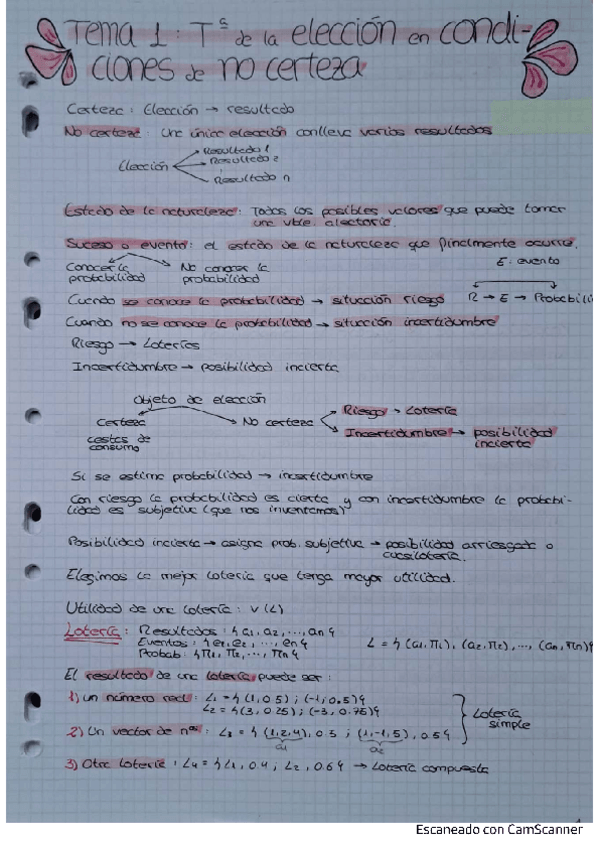 Tema 1: Tª de la elección en condi-
ciones de no certeza
Certeza: Elección → resultado
No certeza: Una única elección conlleva varios resultados
Elección
Resultado 1
Resultado 2
Resultado n
Estado de la naturaleza: Todos los posibles valores que puede tomar
una vble. aleatoria.
Suceso o evento: el estado de la naturaleza que finalmente ocurre.
Conocer la probabilidad
No conocer la probabilidad
E: evento
Cuando se conoce la probabilidad → situación riesgo
R → E → Probabili
Cuando no se conoce la probabilidad → situación incertidumbre
Riesgo → Loterías
Incertidumbre → posibilidad incierta
Objeto de elección
Certeza
cestas de
consumo
No certeza
Riesgo → Lotería
Incertidumbre → posibilidad
incierta
Si se estima probabilidad → incertidumbre
Con riesgo la probabilidad es cierta y con incertidumbre la probabi-
lidad es subjetiva (que nos inventamos)
Posibilidad incierta → asigna prob. subjetiva → posibilidad arriesgada o
cuasilotería.
Elegimos la mejor lotería que tenga mayor utilidad.
Utilidad de una lotería: V(L)
Lotería: Resultados: {a1, a2, ..., an}
Eventos: {e1, e2, ..., en}
Probab: {π1, π2, ..., πn}
L = {(a1, π1), (a2, π2), ..., (an, πn)}
El resultado de una lotería puede ser:
1) un número real: L1 = {(1, 0.5); (-1, 0.5)}
L2 = {(3, 0.25); (-3, 0.75)}
2) Un vector de nos: L3 = {(1,2,4), 0.5; (1,-1,5), 0.5}
a1
a2
Lotería
simple
3) Otra lotería: L4 = {L1, 0.4, L2, 0.6} → Lotería compuesta
Escaneado con CamScanner